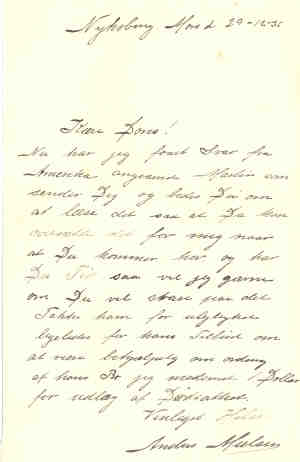 Nykøbing Mors d 29-12-31
Kære Søns!
Nu har jeg faaet Svar fra
Amerika angaaende Martin som
sender Dig og beder Du om
at læse det saa at Du kan
oversætte det for mig naar
at Du kommer her og har
Du Tid saa vil jeg gerne
om Du vil skrive paa det
Takke ham for
ligeledes for hans Tilbud om
at være behjælpelig om ordning
af hans Bo jeg medsendt 1 Dollar
for udlæg af Dødsattest.
Venligst Hilsen
Anders Nielsen